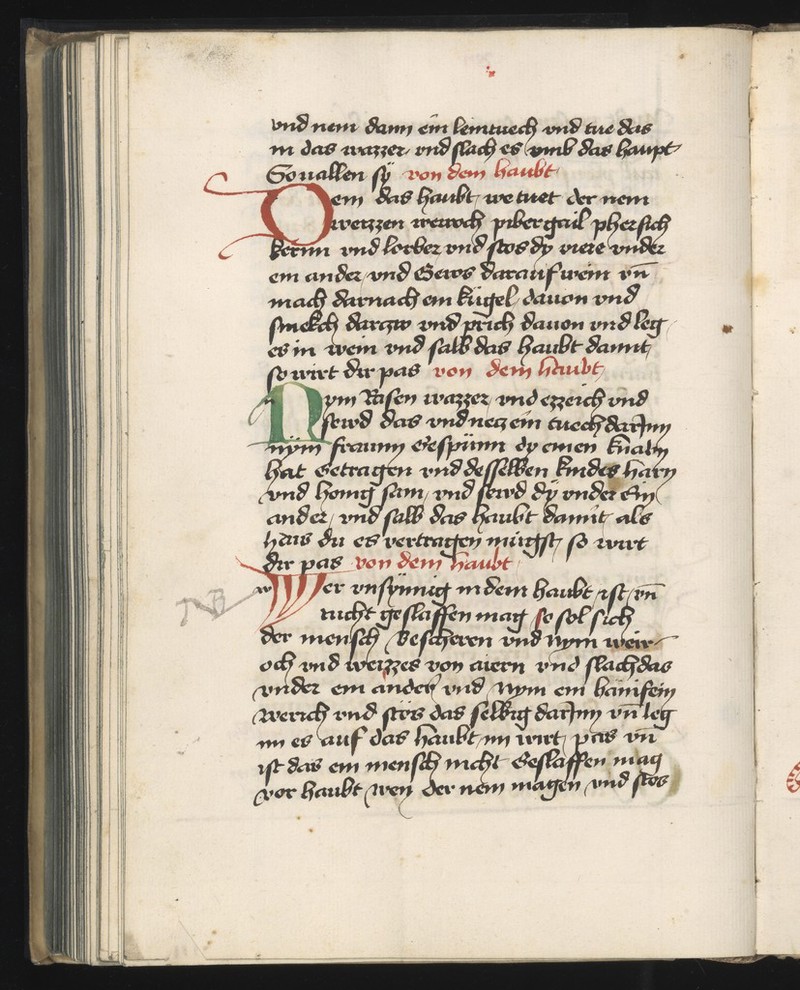 vnd nem dann ein leintuech vnd tue das
in das wazzer vnd slach es vmb das haupt
So uallen sÿ von dem haubt
Dem das haubt we tuet der nem
weizzen weiroch pibergail phersich
kernn vnd lorber vnd stos dÿ viere vnder
ein ander vnd Gews darauf wein vn̄
mach darnach ein kugel dauon vnd
smekch darczw vnd prich dauon vnd leg
es in wein vnd salb das haubt damit
so wirt dir pas von dem haubt
Nym Rosen wazzer vnd ezzeich vnd
sewd das vnd necz ein tuech darInn
nÿm frawnn Gespünn dy einen knabn
hat Getragen vnd desselben kindes harn
vnd honig sam vnd sewd dÿ vnder Ein
ander vnd salb das haubt damit als
hais du es vertragen mügst so wirt
dir pas von dem haubt
Wer vnsynnig in dem haubt ist vn̄
nicht geslaffen mag so sol sich
der mensch bescheren vnd nym weir
och vnd weizzes von aiern vnd slach das
vnder ein ander vnd nym ein hänifein
werich vnd stös das selbig darInn vn̄ leg
im es auf das haubt im wirt pas vn̄
ist das ein mensch nicht Geslaffen mag
vor haubt wen der nem magen vnd stos
NB